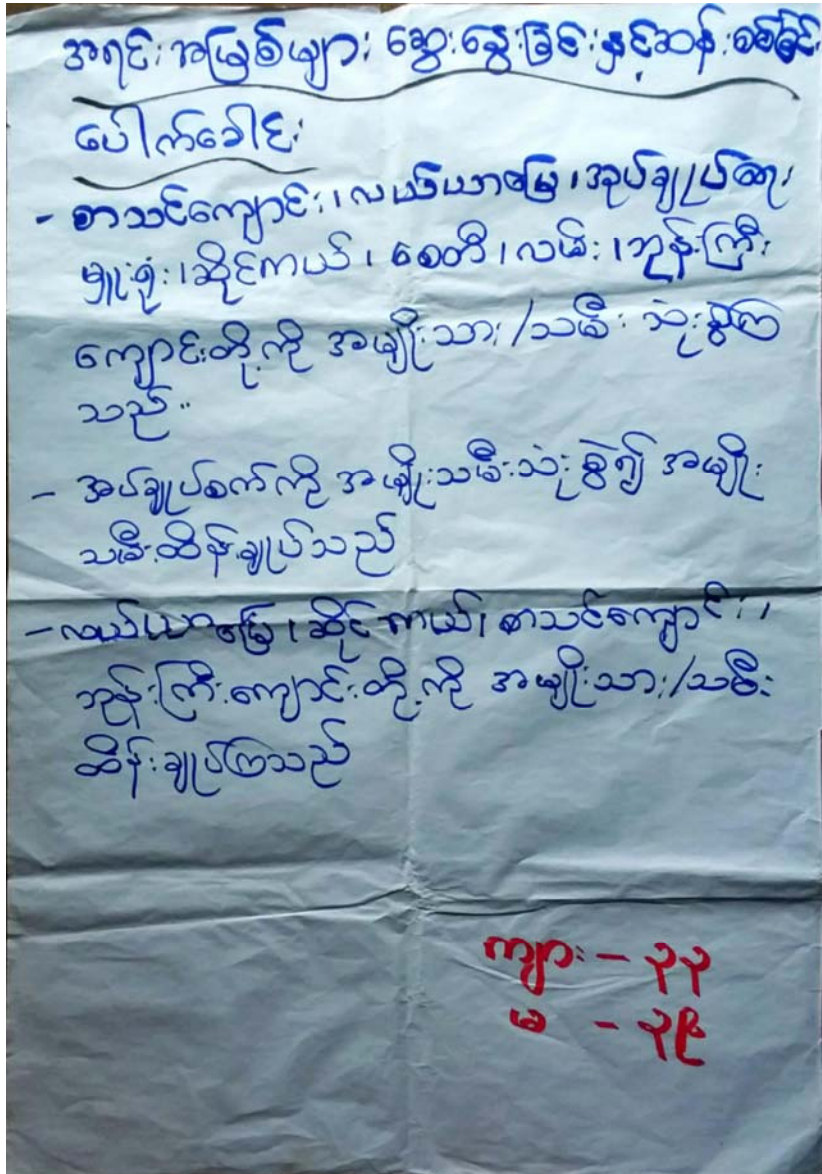 အရင်းအမြစ်များ ဆွေးနွေးခြင်းနှင့်ဆန်းစစ်ခြင်း
ပေါက်ခေါင်း
- စာသင်ကျောင်း၊ လယ်ယာမြေ၊ အုပ်ချုပ်ရေး
မှူးရုံး၊ ဆိုင်ကယ်၊ စေတီ၊ လမ်း၊ ဘုန်းကြီး
ကျောင်းတို့ကို အမျိုးသား/သမီး သုံးစွဲကြ
သည်။
- အပ်ချုပ်စက်ကို အမျိုးသမီးသုံးစွဲ၍ အမျိုး
သမီးထိန်းချုပ်သည်
- လယ်ယာမြေ၊ ဆိုင်ကယ်၊ စာသင်ကျောင်း၊
ဘုန်းကြီးကျောင်းတို့ကို အမျိုးသား/သမီး
ထိန်းချုပ်ကြသည်
ကျား - ၃၃
မ - ၃၉